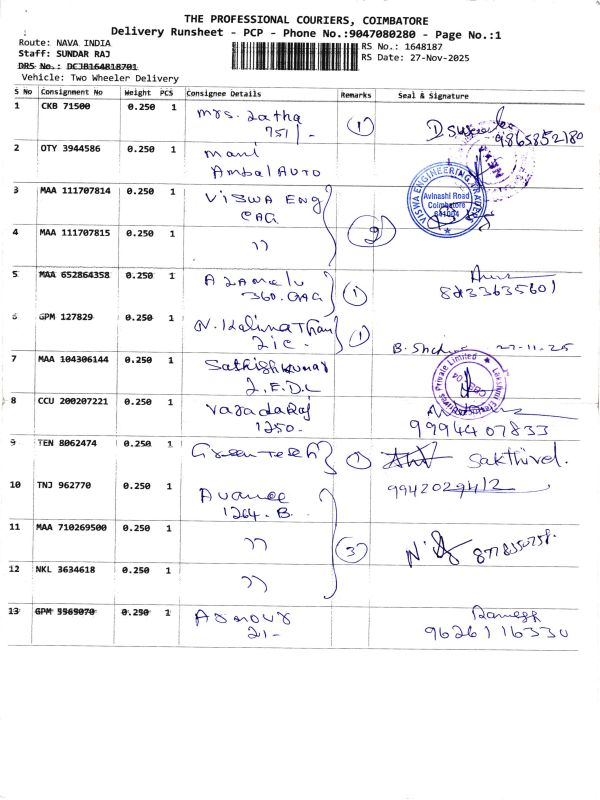 THE PROFESSIONAL COURIERS, COIMBATORE
Delivery Runsheet - PCP - Phone No.:9047080280 - Page No.:1
Route: NAVA INDIA
RS No.: 1648187
Staff: SUNDAR RAJ
RS Date: 27-Nov-2025
DRS No.: DCJB164818701
Vehicle: Two Wheeler Delivery
S No Consignment No Weight PCS Consignee Details Remarks Seal & Signature
1 CKB 71500 0.250 1 Mrs. Latha 1
751/- 9865852180
2 OTY 3944586 0.250 1 Mani
Ambal Auto
3 MAA 111707814 0.250 1 VISWA Eng
CAG
VISWA ENGINEERING
Avinashi Road
Coimbatore
641004
4 MAA 111707815 0.250 1 " 2
5 MAA 652864358 0.250 1
360. CAG 1 8d33635601
6 GPM 127829 0.250 1 N. Kalinathan 1
212. B. 27-11-25
7 MAA 104306144 0.250 1 Sathishkumar
Private Limited
8 CCU 200207221 0.250 1 Varadaraj
1250. 9994407833
9 TEN 8062474 0.250 1 Green Tech 1 Sakthivel.
10 TNJ 962770 0.250 1 Avanee 9942029412
1264. B.
11 MAA 710269500 0.250 1 " 3
12 NKL 3634618 0.250 1 "
13 GPM 5569070 0.250 1 Armour Ramesh
21- 9626116330